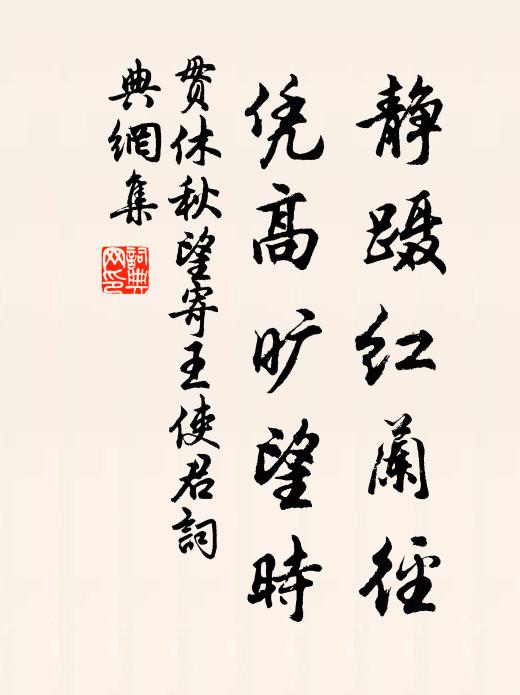 静蹑红蘭径
凭高旷望時
贯休秋望寄王使君詞
典網集
詞典
网印